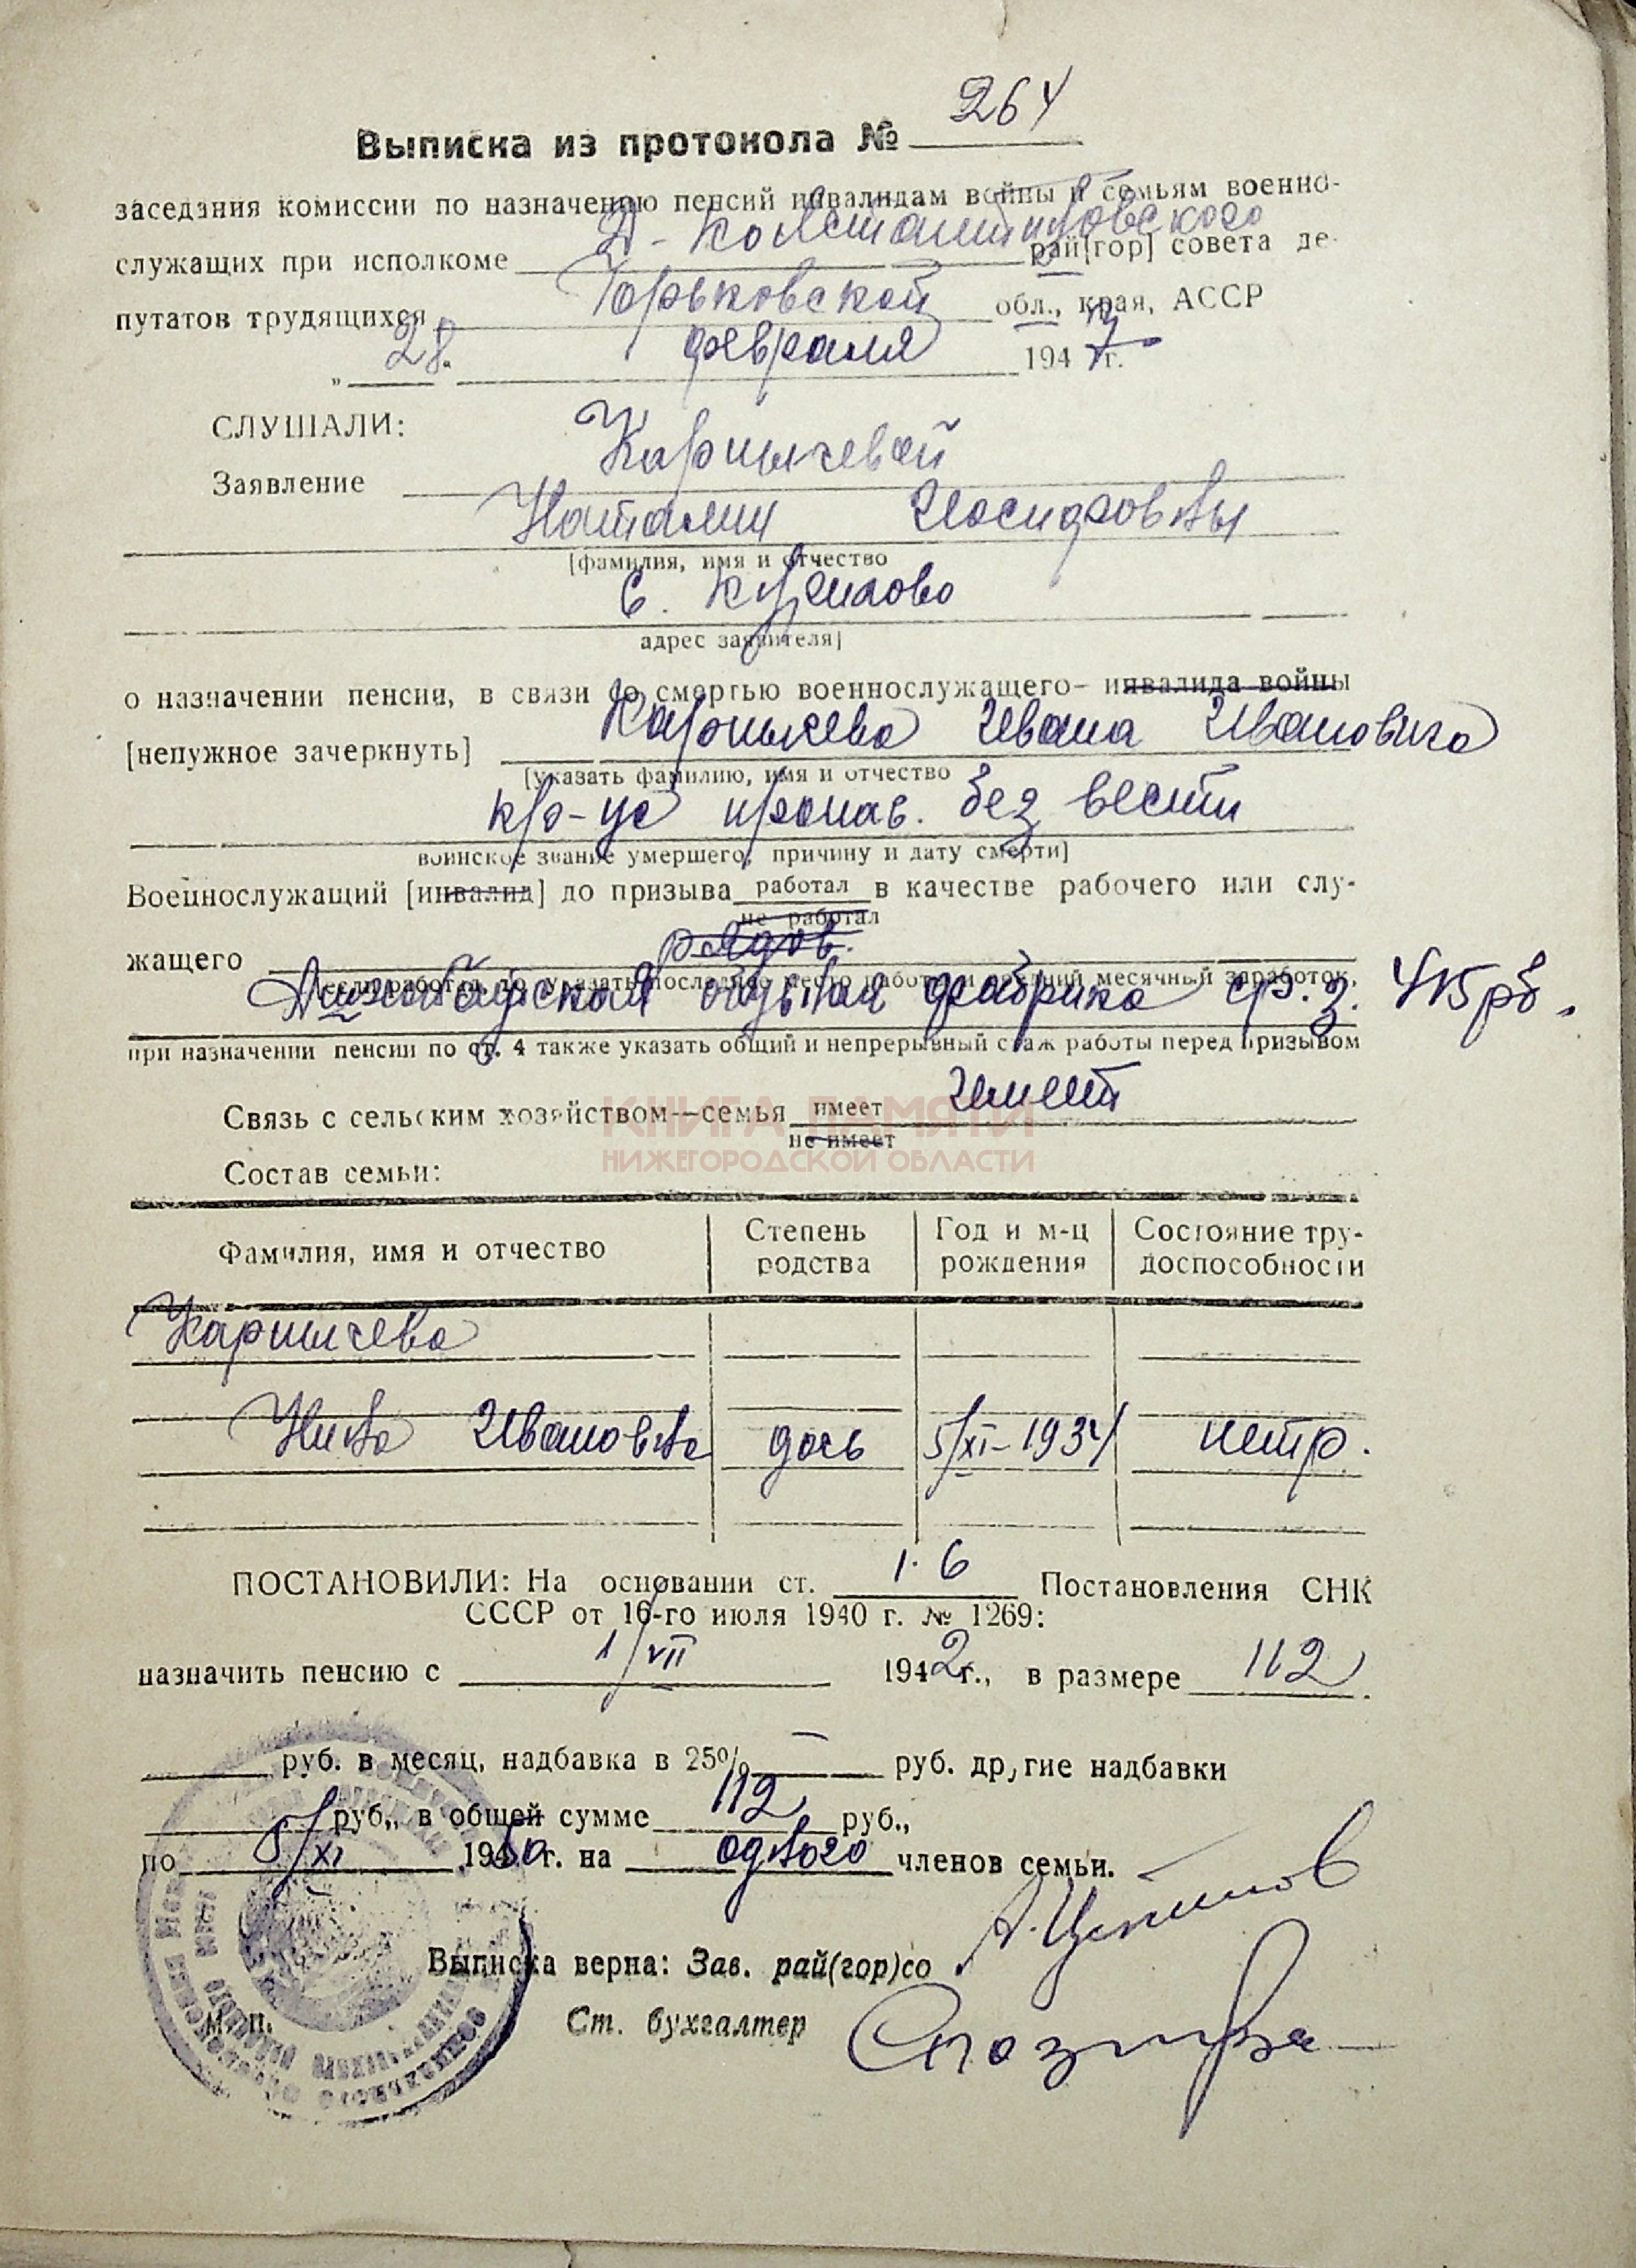 264
Выписка из протокола №
заседания комиссии по назначению пенсий инвалидам войны и семьям военно-
Д-Константиновского
служащих при исполкоме рай[гор] совета де-
путатов трудящихся Горьковской обл., края, АССР
"28." февраля 1947 г.
СЛУШАЛИ:
Заявление Карпычевой
Наталии Иосифовны
[фамилия, имя и отчество
с.
адрес заявителя]
о назначении пенсии, в связи со смертью военнослужащего- инвалида войны
[непужное зачеркнуть] Карпычева Ивана Ивановича
[указать фамилию, имя и отчество
кр-ца пропав. без вести
воинское звание умершего, причину и дату смерти]
Военнослужащий [инвалид] до призыва работал в качестве рабочего или слу-
не работал
жащего рядов.
если работал, то указать последнее место работы и средний месячный заработок,
обувная фабрика ср. з. 415 рб.
при назначении пенсии по ст. 4 также указать общий и непрерывный стаж работы перед призывом
Связь с сельским хозяйством--семья имеет имеет
не имеет
КНИГА ПАМЯТИ
НИЖЕГОРОДСКОЙ ОБЛАСТИ
Состав семьи:
Фамилия, имя и отчество Степень родства Год и м-ц рождения Состояние тру-доспособности
Карпычева
Нина Ивановна дочь 5/XI-1934 нетр.
ПОСТАНОВИЛИ: На основании ст. 1.6 Постановления СНК
СССР от 16-го июля 1940 г. № 1269:
назначить пенсию с 1/VII 1942 г., в размере 112
руб. в месяц, надбавка в 25% — руб. другие надбавки
руб., в общей сумме 112 руб.,
по 5/XI 1950 г. на одного членов семьи.
Выписка верна: Зав. рай(гор)со
м. п.
Ст. бухгалтер